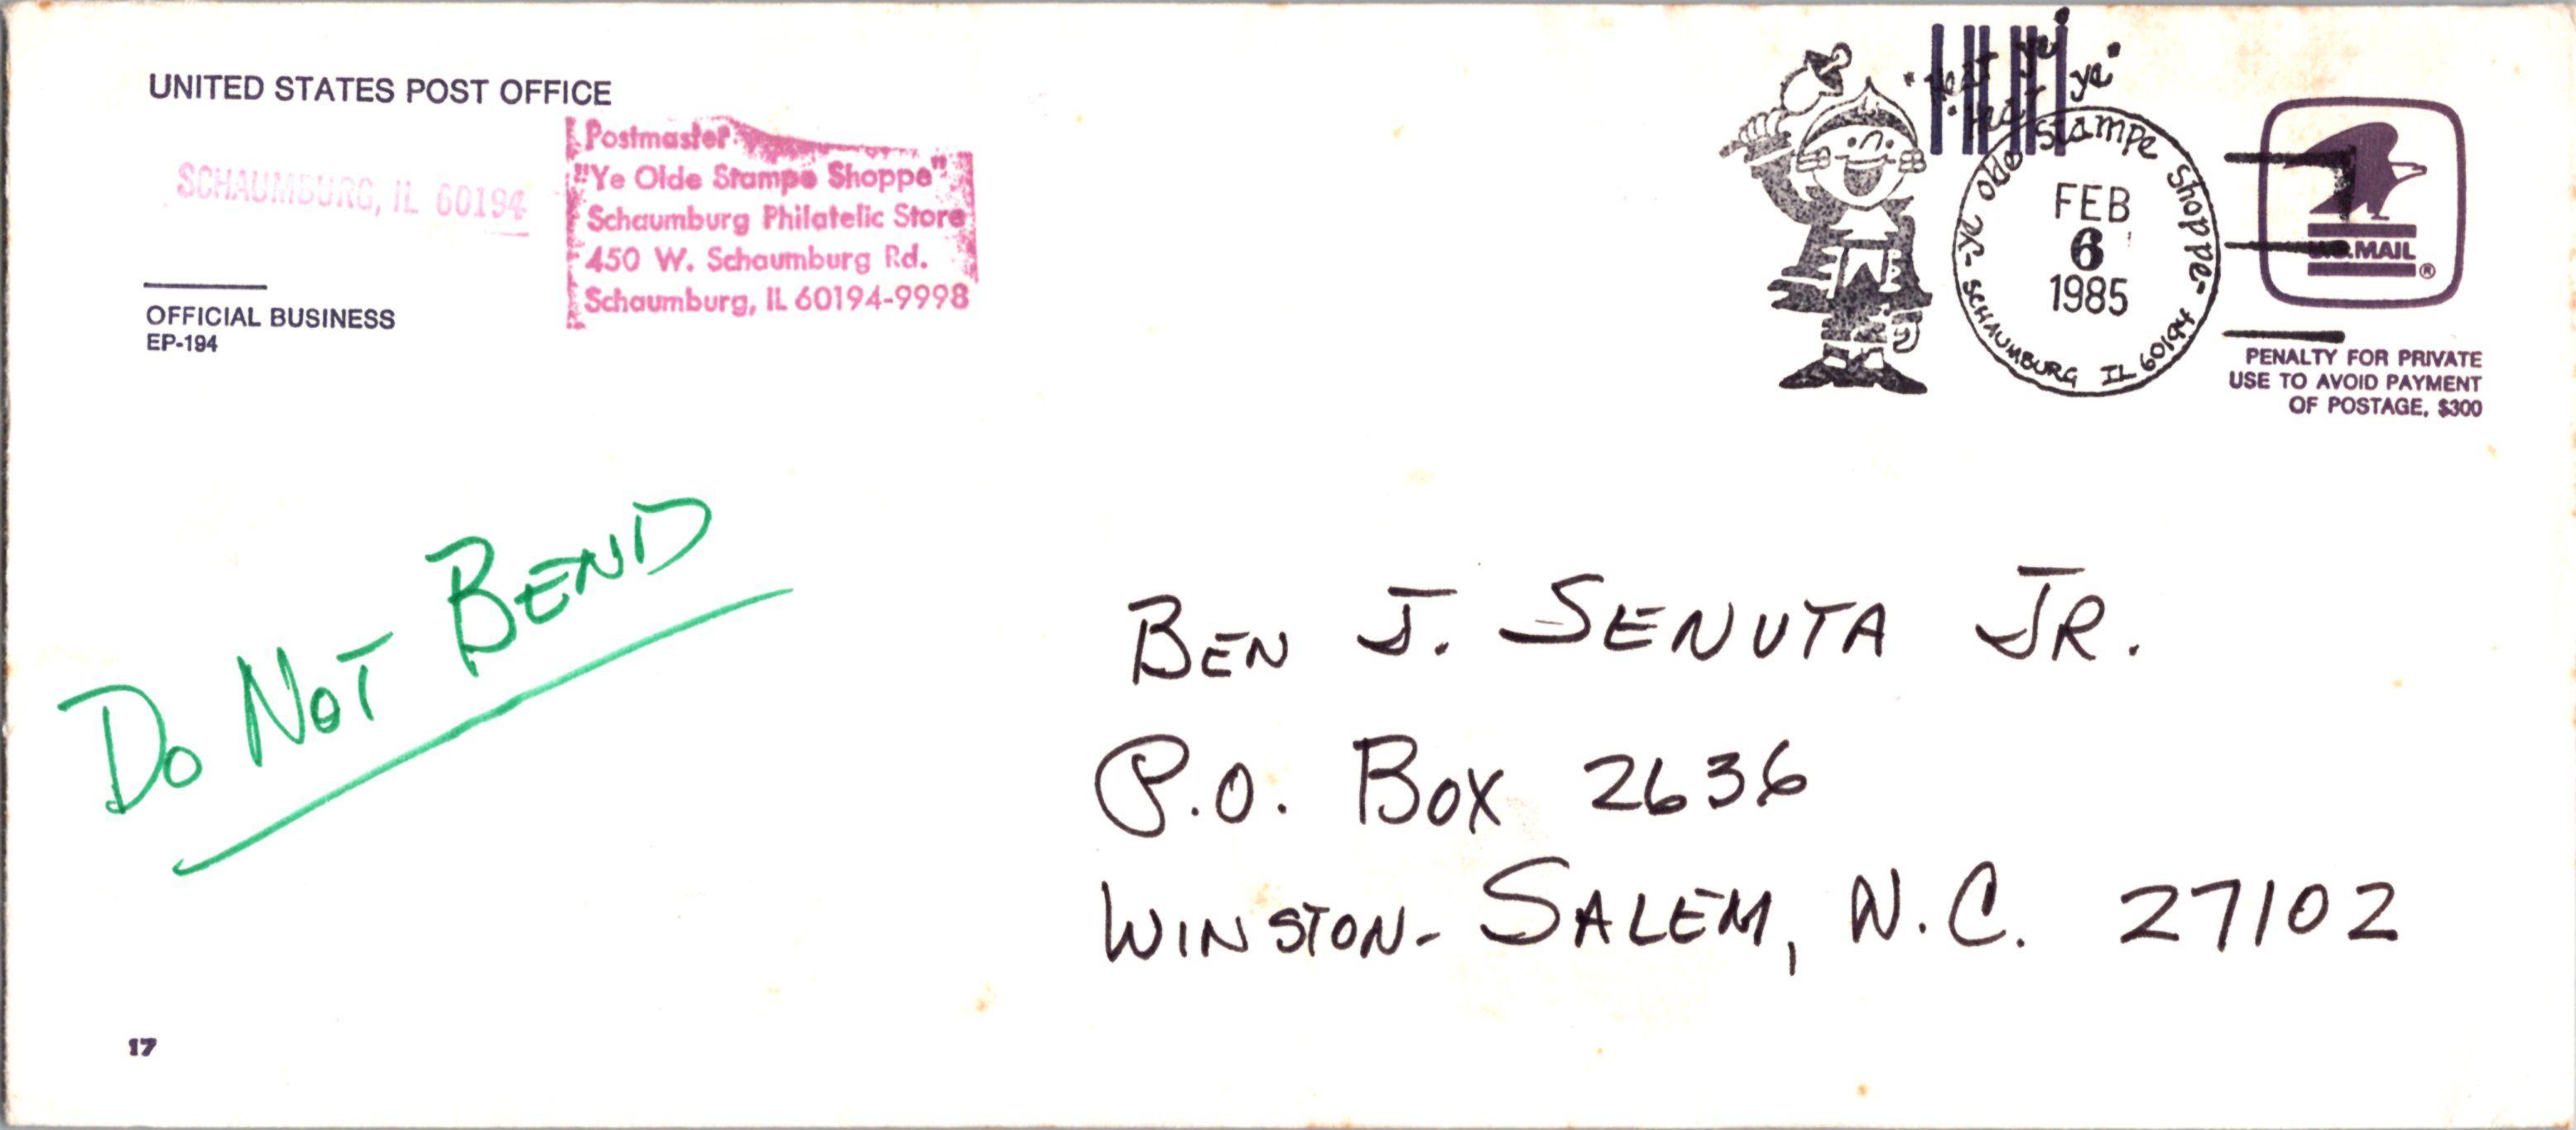 UNITED STATES POST OFFICE
SCHAUMBURG, IL 60194
Postmaster
"Ye Olde Stampe Shoppe"
Schaumburg Philatelic Store
450 W. Schaumburg Rd.
Schaumburg, IL 60194-9998
OFFICIAL BUSINESS
EP-194
"Hear ye
Hear ye"
-Ye Olde Stampe Shoppe-
FEB
6
1985
SCHAUMBURG IL 60194
U.S.MAIL
®
PENALTY FOR PRIVATE
USE TO AVOID PAYMENT
OF POSTAGE, $300
DO NOT BEND
BEN J. SENUTA JR.
P.O. BOX 2636
WINSTON-SALEM, N.C. 27102
17